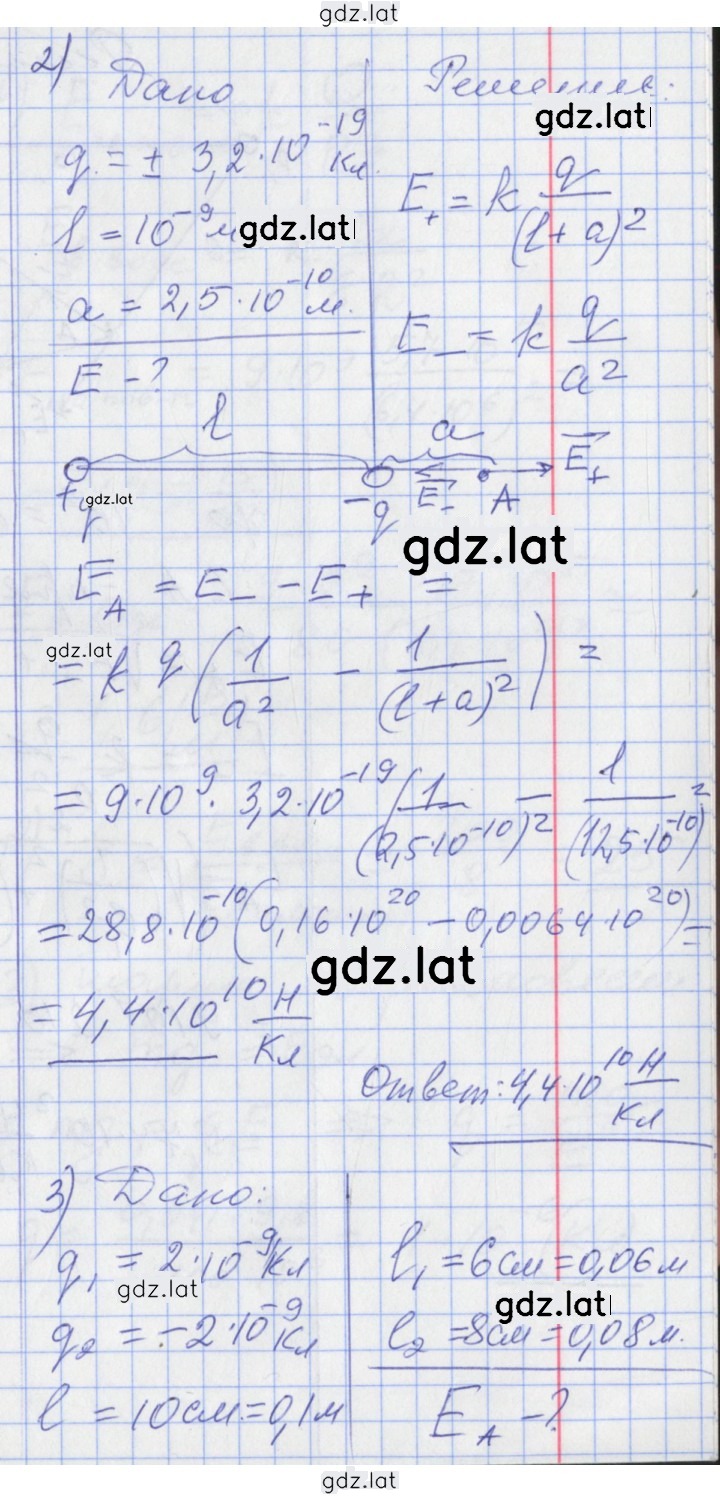 gdz.lat
2) Дано
Решение:
gdz.lat
q = ± 3,2·10⁻¹⁹ Кл.
E₊ = k q/(l+a)²
l = 10⁻⁹ м
gdz.lat
a = 2,5·10⁻¹⁰ м.
E₋ = k q/a²
E - ?
l
a
+q
gdz.lat
-q
E₋
A
E₊
gdz.lat
E_A = E₋ - E₊ =
gdz.lat
= k q (1/a² - 1/(l+a)²) =
= 9·10⁹ · 3,2·10⁻¹⁹ (1/(2,5·10⁻¹⁰)² - 1/(12,5·10⁻¹⁰)²
= 28,8·10⁻¹⁰ (0,16·10²⁰ - 0,0064·10²⁰) =
gdz.lat
= 4,4·10¹⁰ Н/Кл
Ответ: 4,4·10¹⁰ Н/Кл
3) Дано:
q₁ = 2·10⁻⁹ Кл
gdz.lat
q₂ = -2·10⁻⁹ Кл
l = 10см = 0,1м
l₁ = 6см = 0,06м
gdz.lat
l₂ = 8см = 0,08м.
E_A - ?
gdz.lat